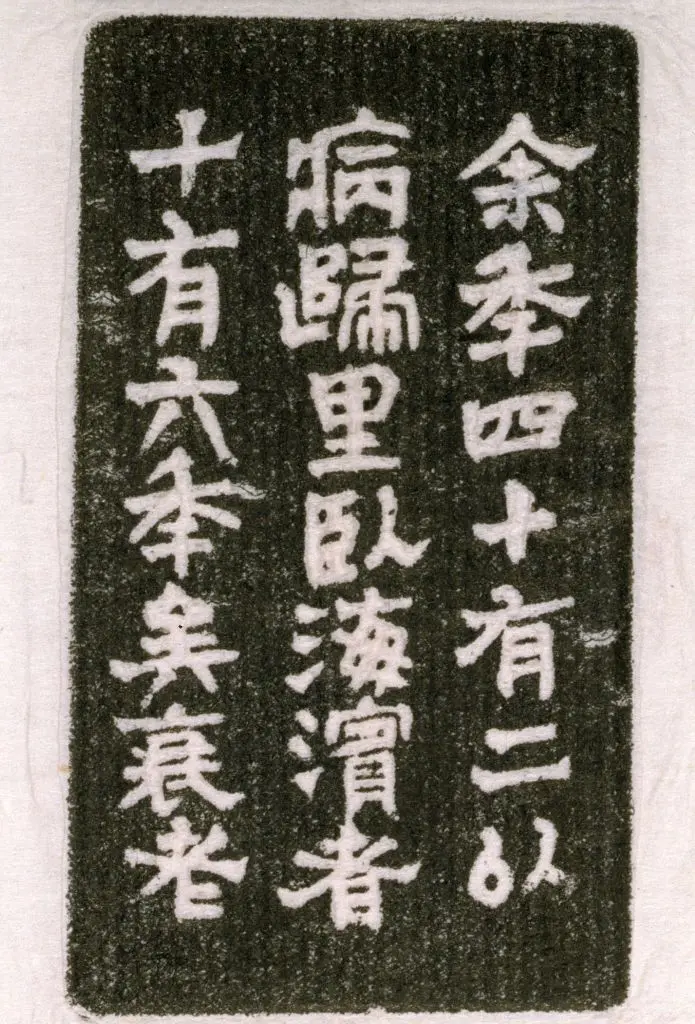 余季四十有二以
病歸里臥海濵者
十有六季矣衰老